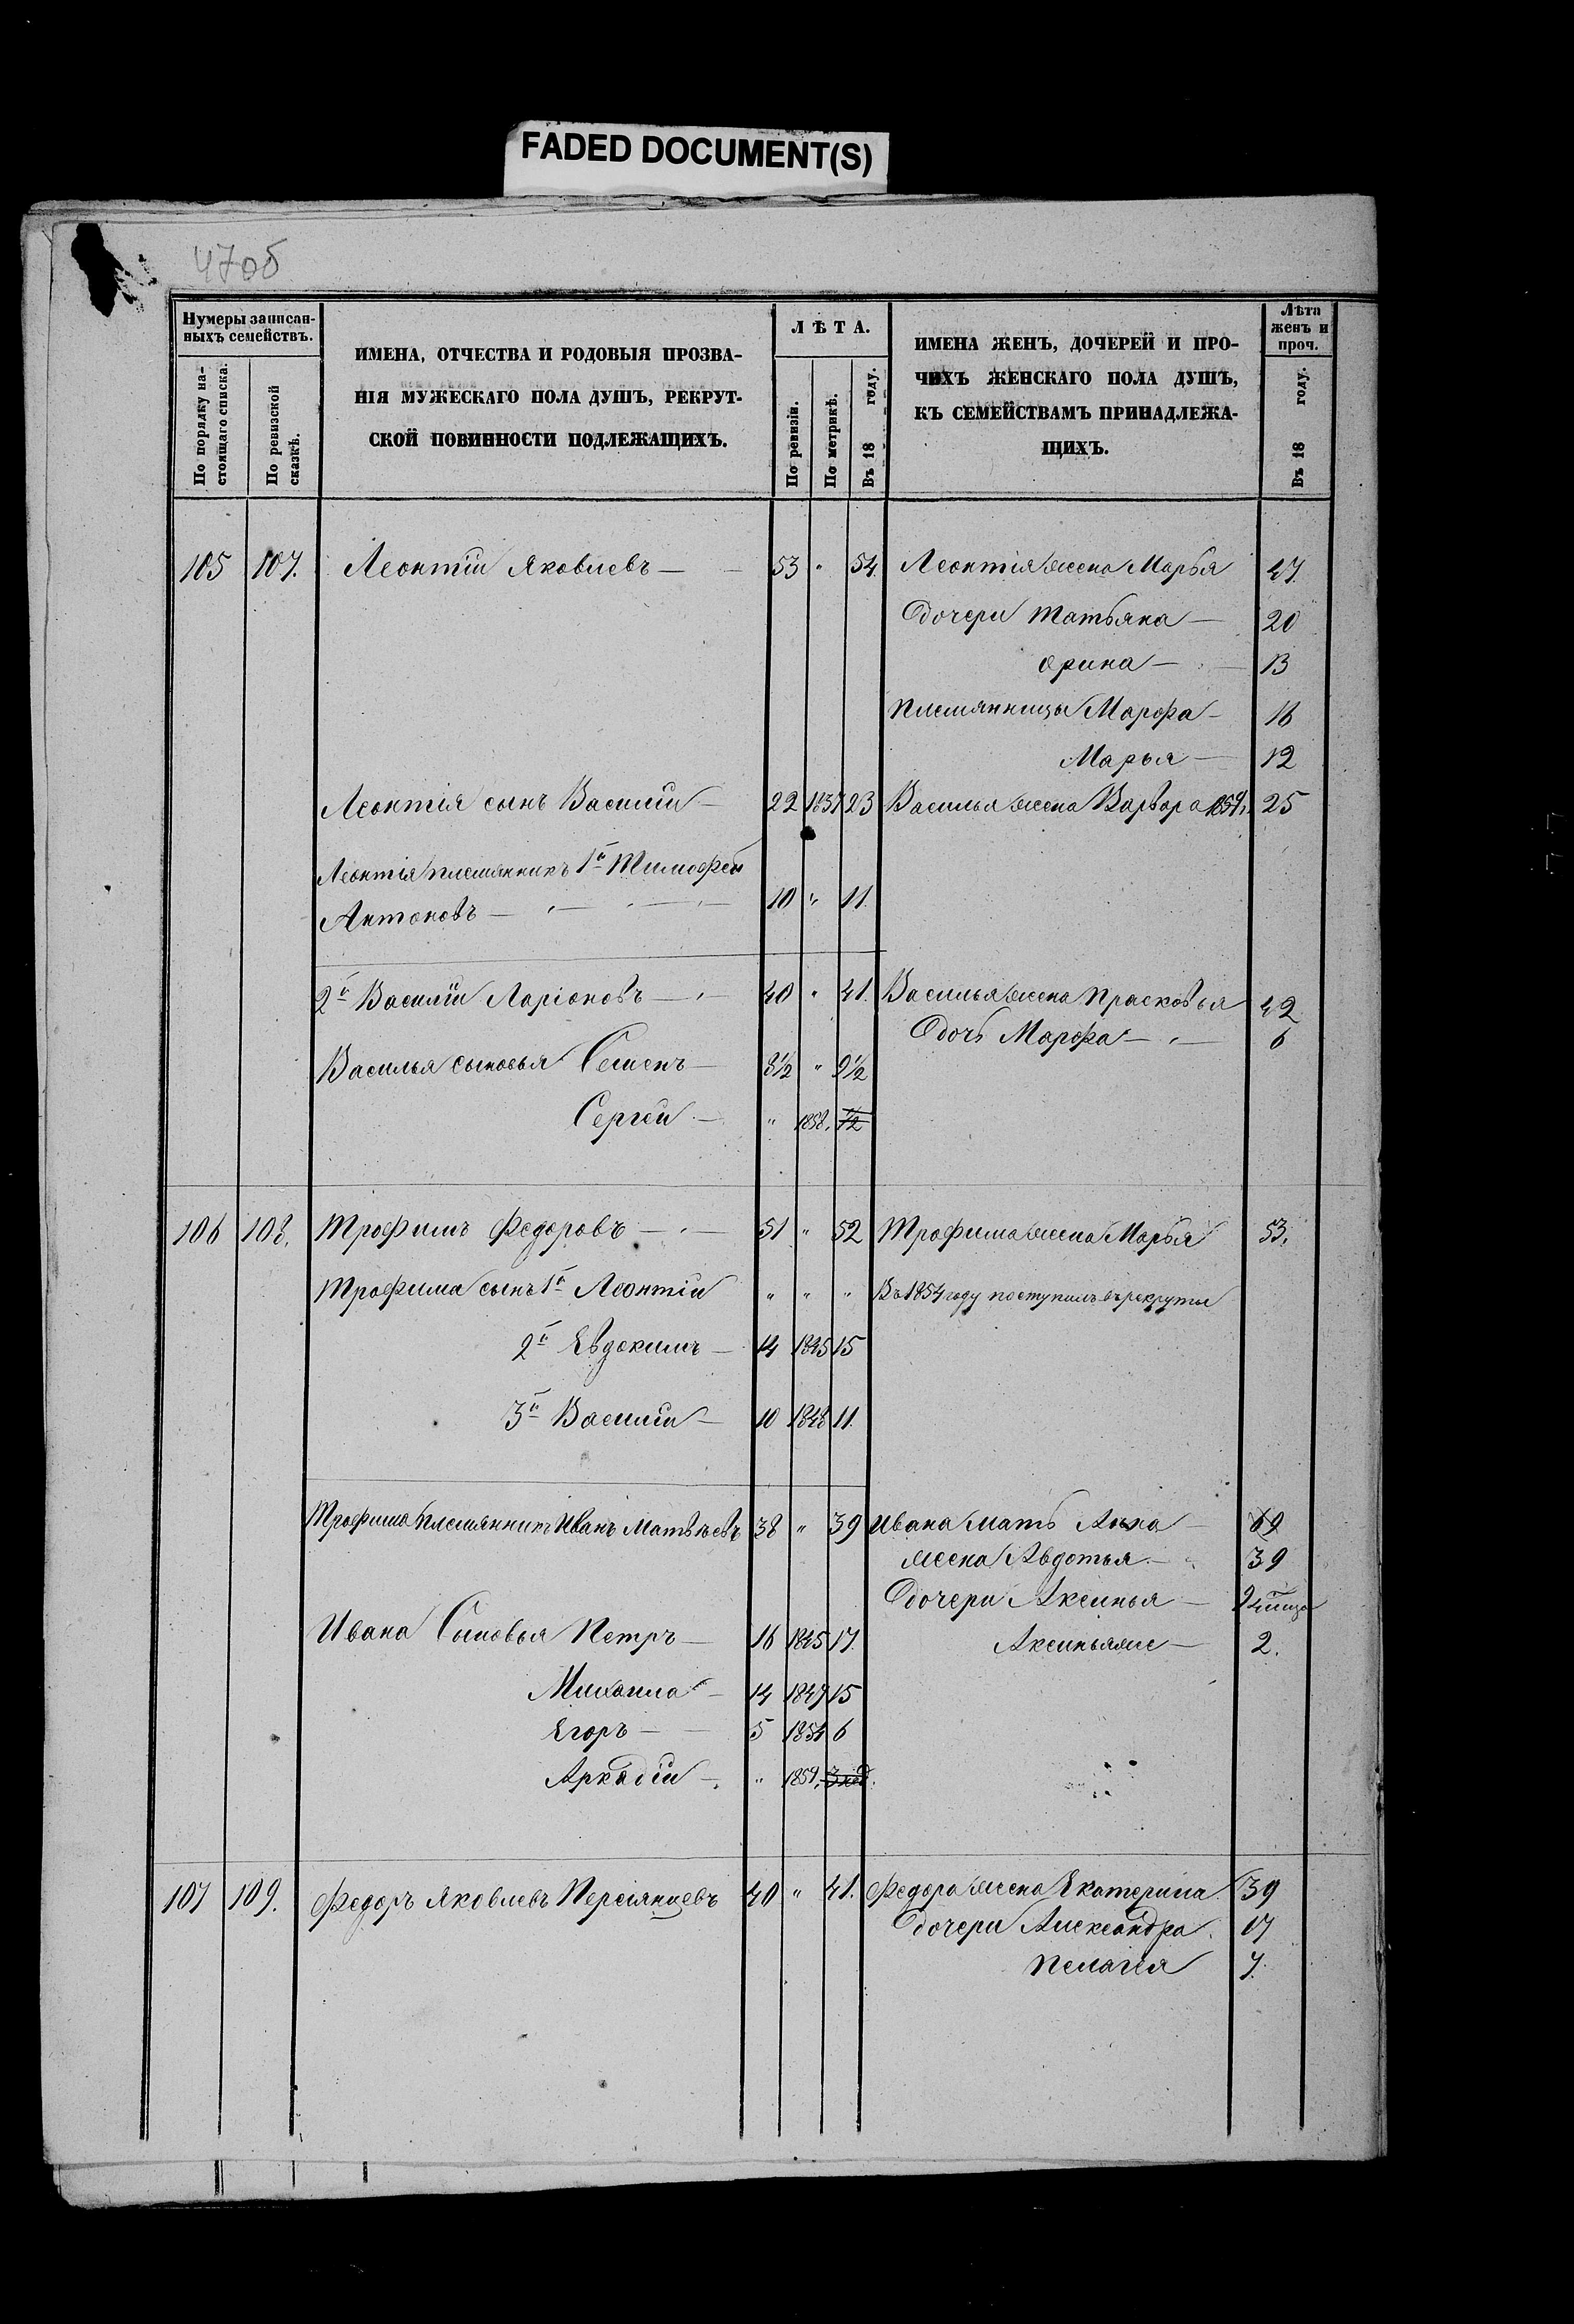 FADED DOCUMENT(S)
47об
Нумеры записан-
ныхъ семействъ.
По порядку на-
стоящаго списка.
По ревизской
сказкѣ.
ИМЕНА, ОТЧЕСТВА И РОДОВЫЯ ПРОЗВА-
НІЯ МУЖЕСКАГО ПОЛА ДУШЪ, РЕКРУТ-
СКОЙ ПОВИННОСТИ ПОДЛЕЖАЩИХЪ.
ЛѢТА.
По ревизіи.
По метрикѣ.
Въ 18 году.
ИМЕНА ЖЕНЪ, ДОЧЕРЕЙ И ПРО-
ЧИХЪ ЖЕНСКАГО ПОЛА ДУШЪ,
КЪ СЕМЕЙСТВАМЪ ПРИНАДЛЕЖА-
ЩИХЪ.
Лѣта
женъ и
проч.
Въ 18 году.
105 107. Леонтій Яковлевъ — 53 " 54. Леонтія жена Марья 47
Дочери Татьяна — 20
Орина — 13
Племянницы Марфа — 16
Марья — 12
Леонтія сынъ Василій — 22 1837 23 Василья жена Варвара 1859. 25
Леонтія племянникъ 1й Тимофей
Антоновъ — 10 " 11.
2й Василій Ларіоновъ — 40 " 41. Василья жена Прасковья 42
Дочь Марфа — 6
Василья сыновья Семенъ — 8½ " 9½
Сергей — " 1858. ½
106 108. Трофимъ Федоровъ — 51 " 52 Трофима жена Марья 53.
Трофима сынъ 1й Леонтій " " " Въ 1854 году поступилъ въ рекруты
2й Евдокимъ — 14 1845 15
3й Василій — 10 1848 11.
Трофима племянникъ Иванъ Матвѣевъ 38 " 39 Ивана мать Анна — 69
жена Авдотья — 39
Дочери Аксинья —
Ивана Сыновья Петръ — 16 1845 17. Аксинья же — 2.
Михаила — 14 1847 15
Егоръ — 5 1854 6
Аркадій — " 1859.
107 109. Федоръ Яковлевъ Персіянцевъ 40 " 41. Федора жена Екатерина 39
Дочери Александра. 17
Пелагея 7.